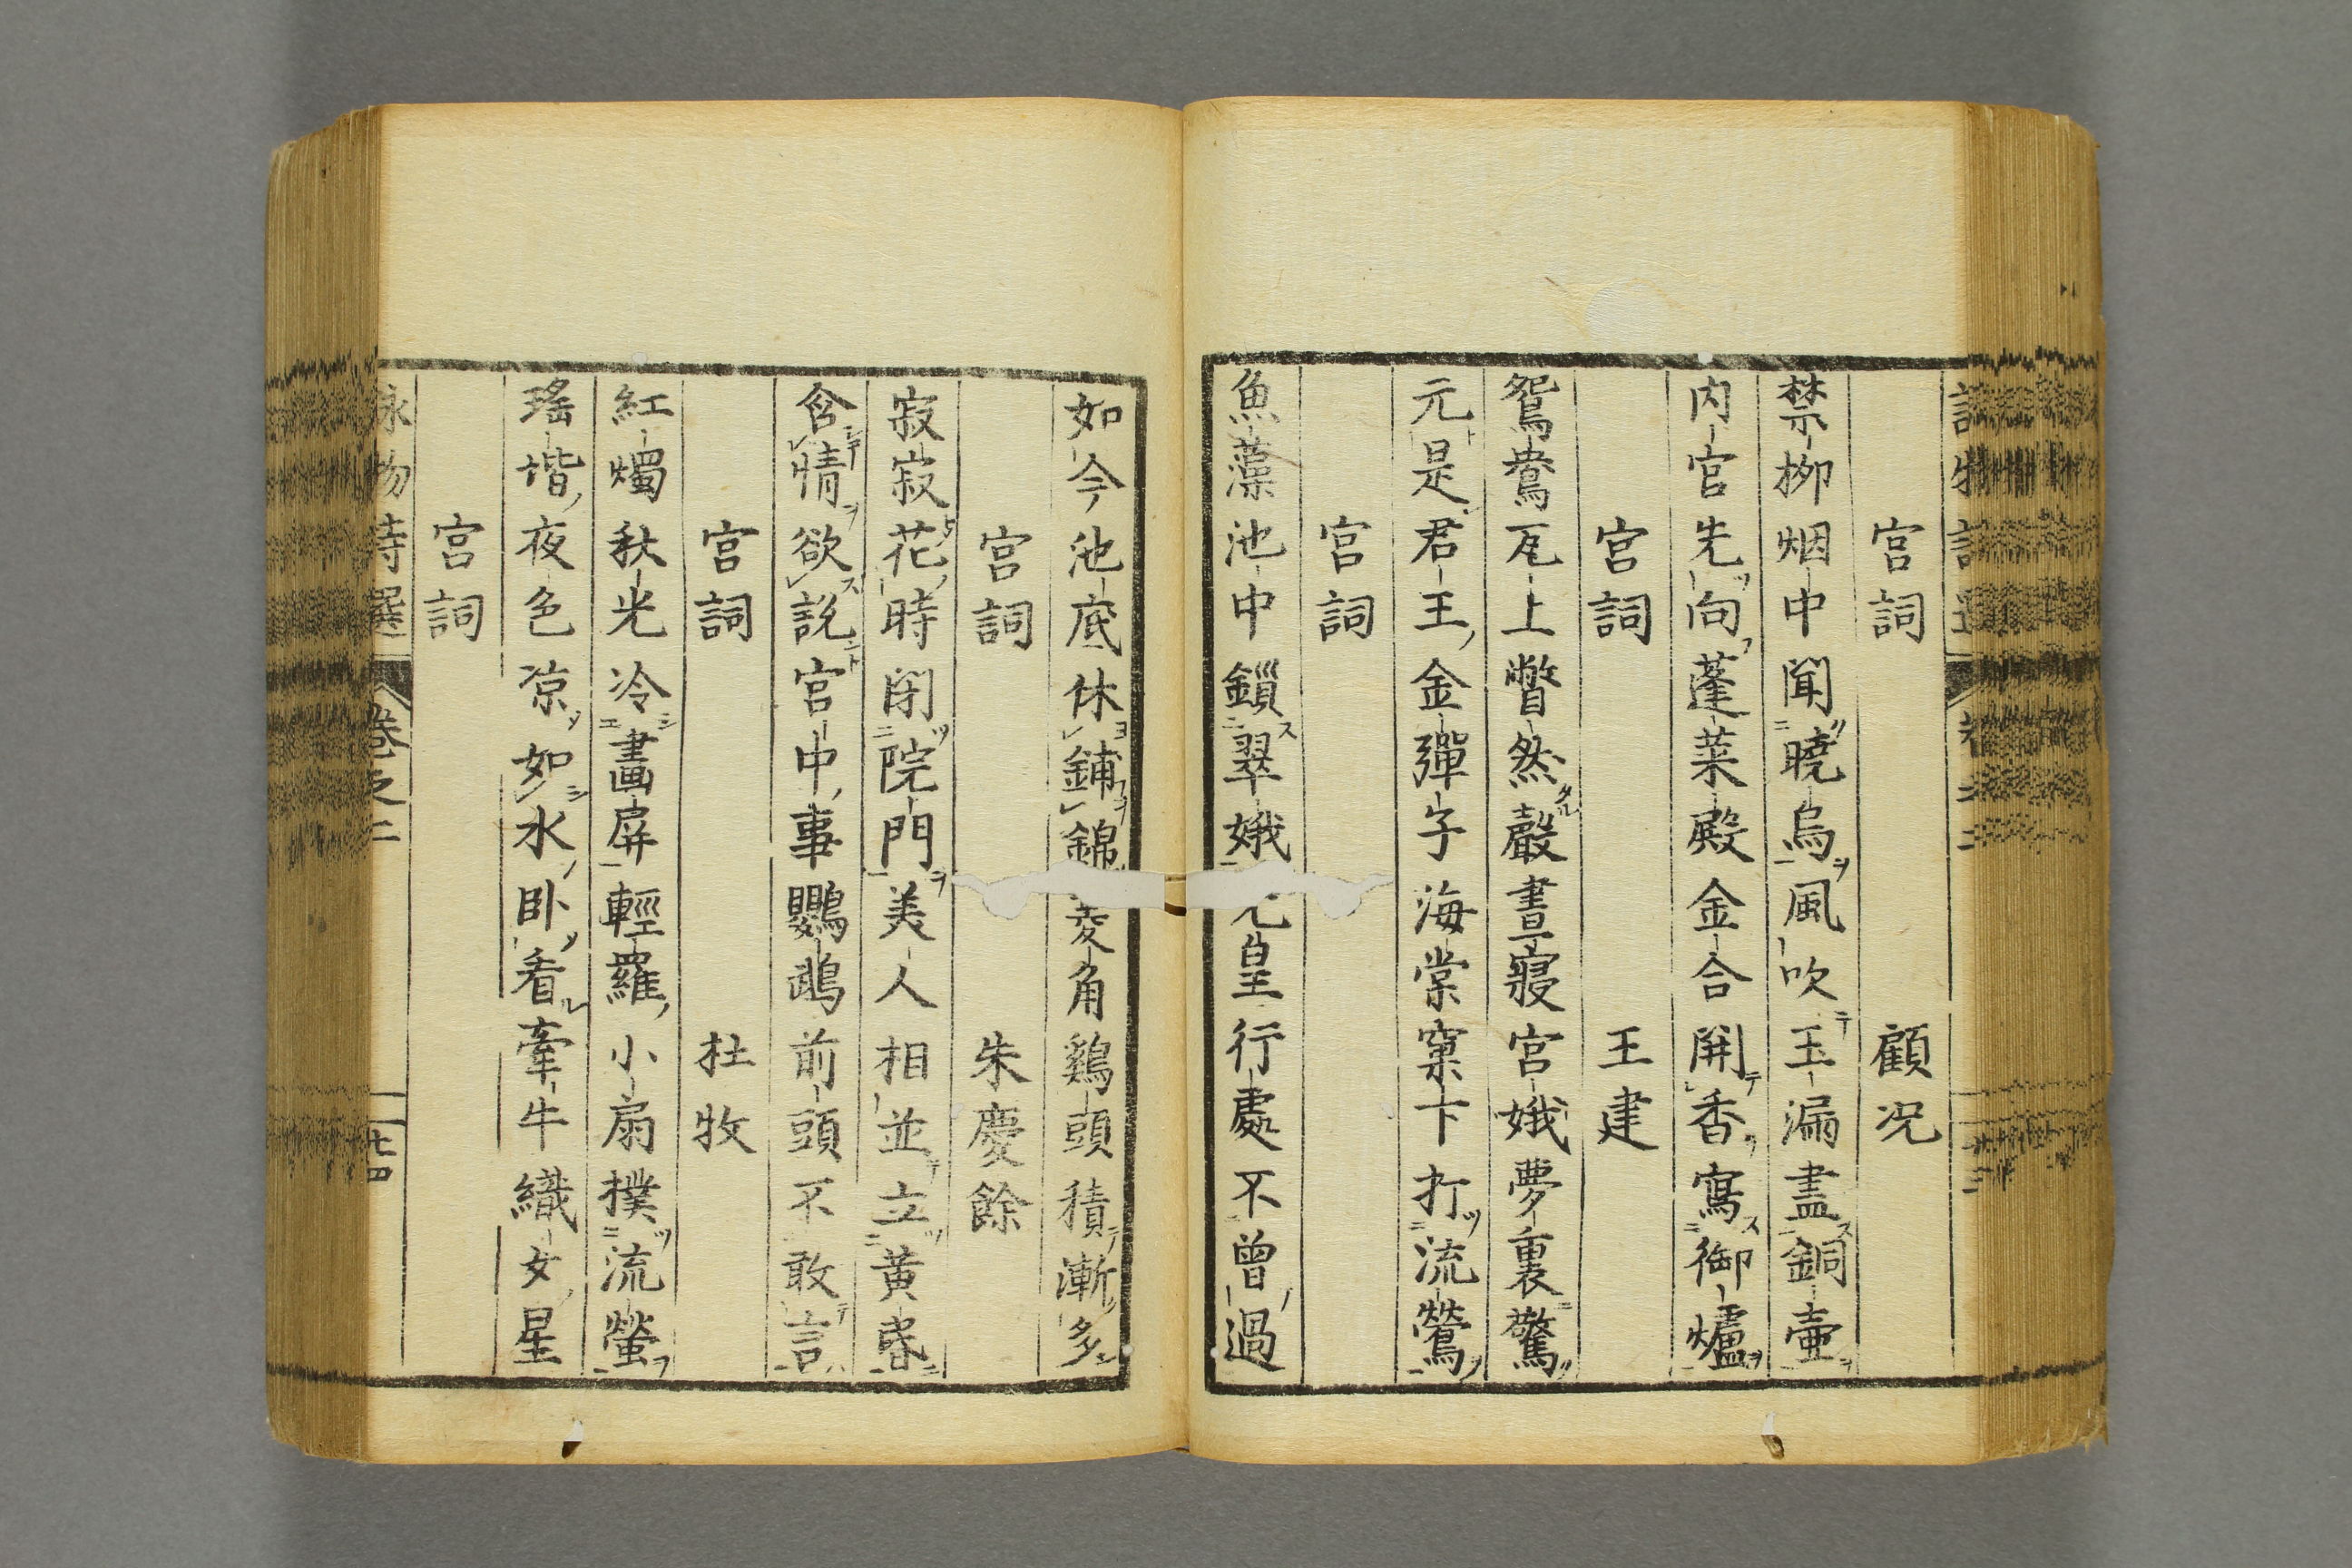 宮詞　顧況
禁柳烟中聞曉烏風吹玉漏盡銅壺
内官先向蓬莱殿金合開香寫御爐
宮詞　王建
鴛鴦瓦上瞥然聲晝寢宮娥夢裏驚
元是君王金彈子海棠窠下打流鶯
宮詞
魚藻池中鎖翠娥元皇行處不曾過
如今池底休鋪錦菱角鷄頭積漸多
宮詞　朱慶餘
寂寂花時閉院門美人相並立黄昏
含情欲説宮中事鸚鵡前頭不敢言
宮詞　杜牧
紅燭秋光冷畫屏輕羅小扇撲流螢
瑤堦夜色凉如水卧看牽牛織女星
宮詞
詠物詩選　卷之二　廿四